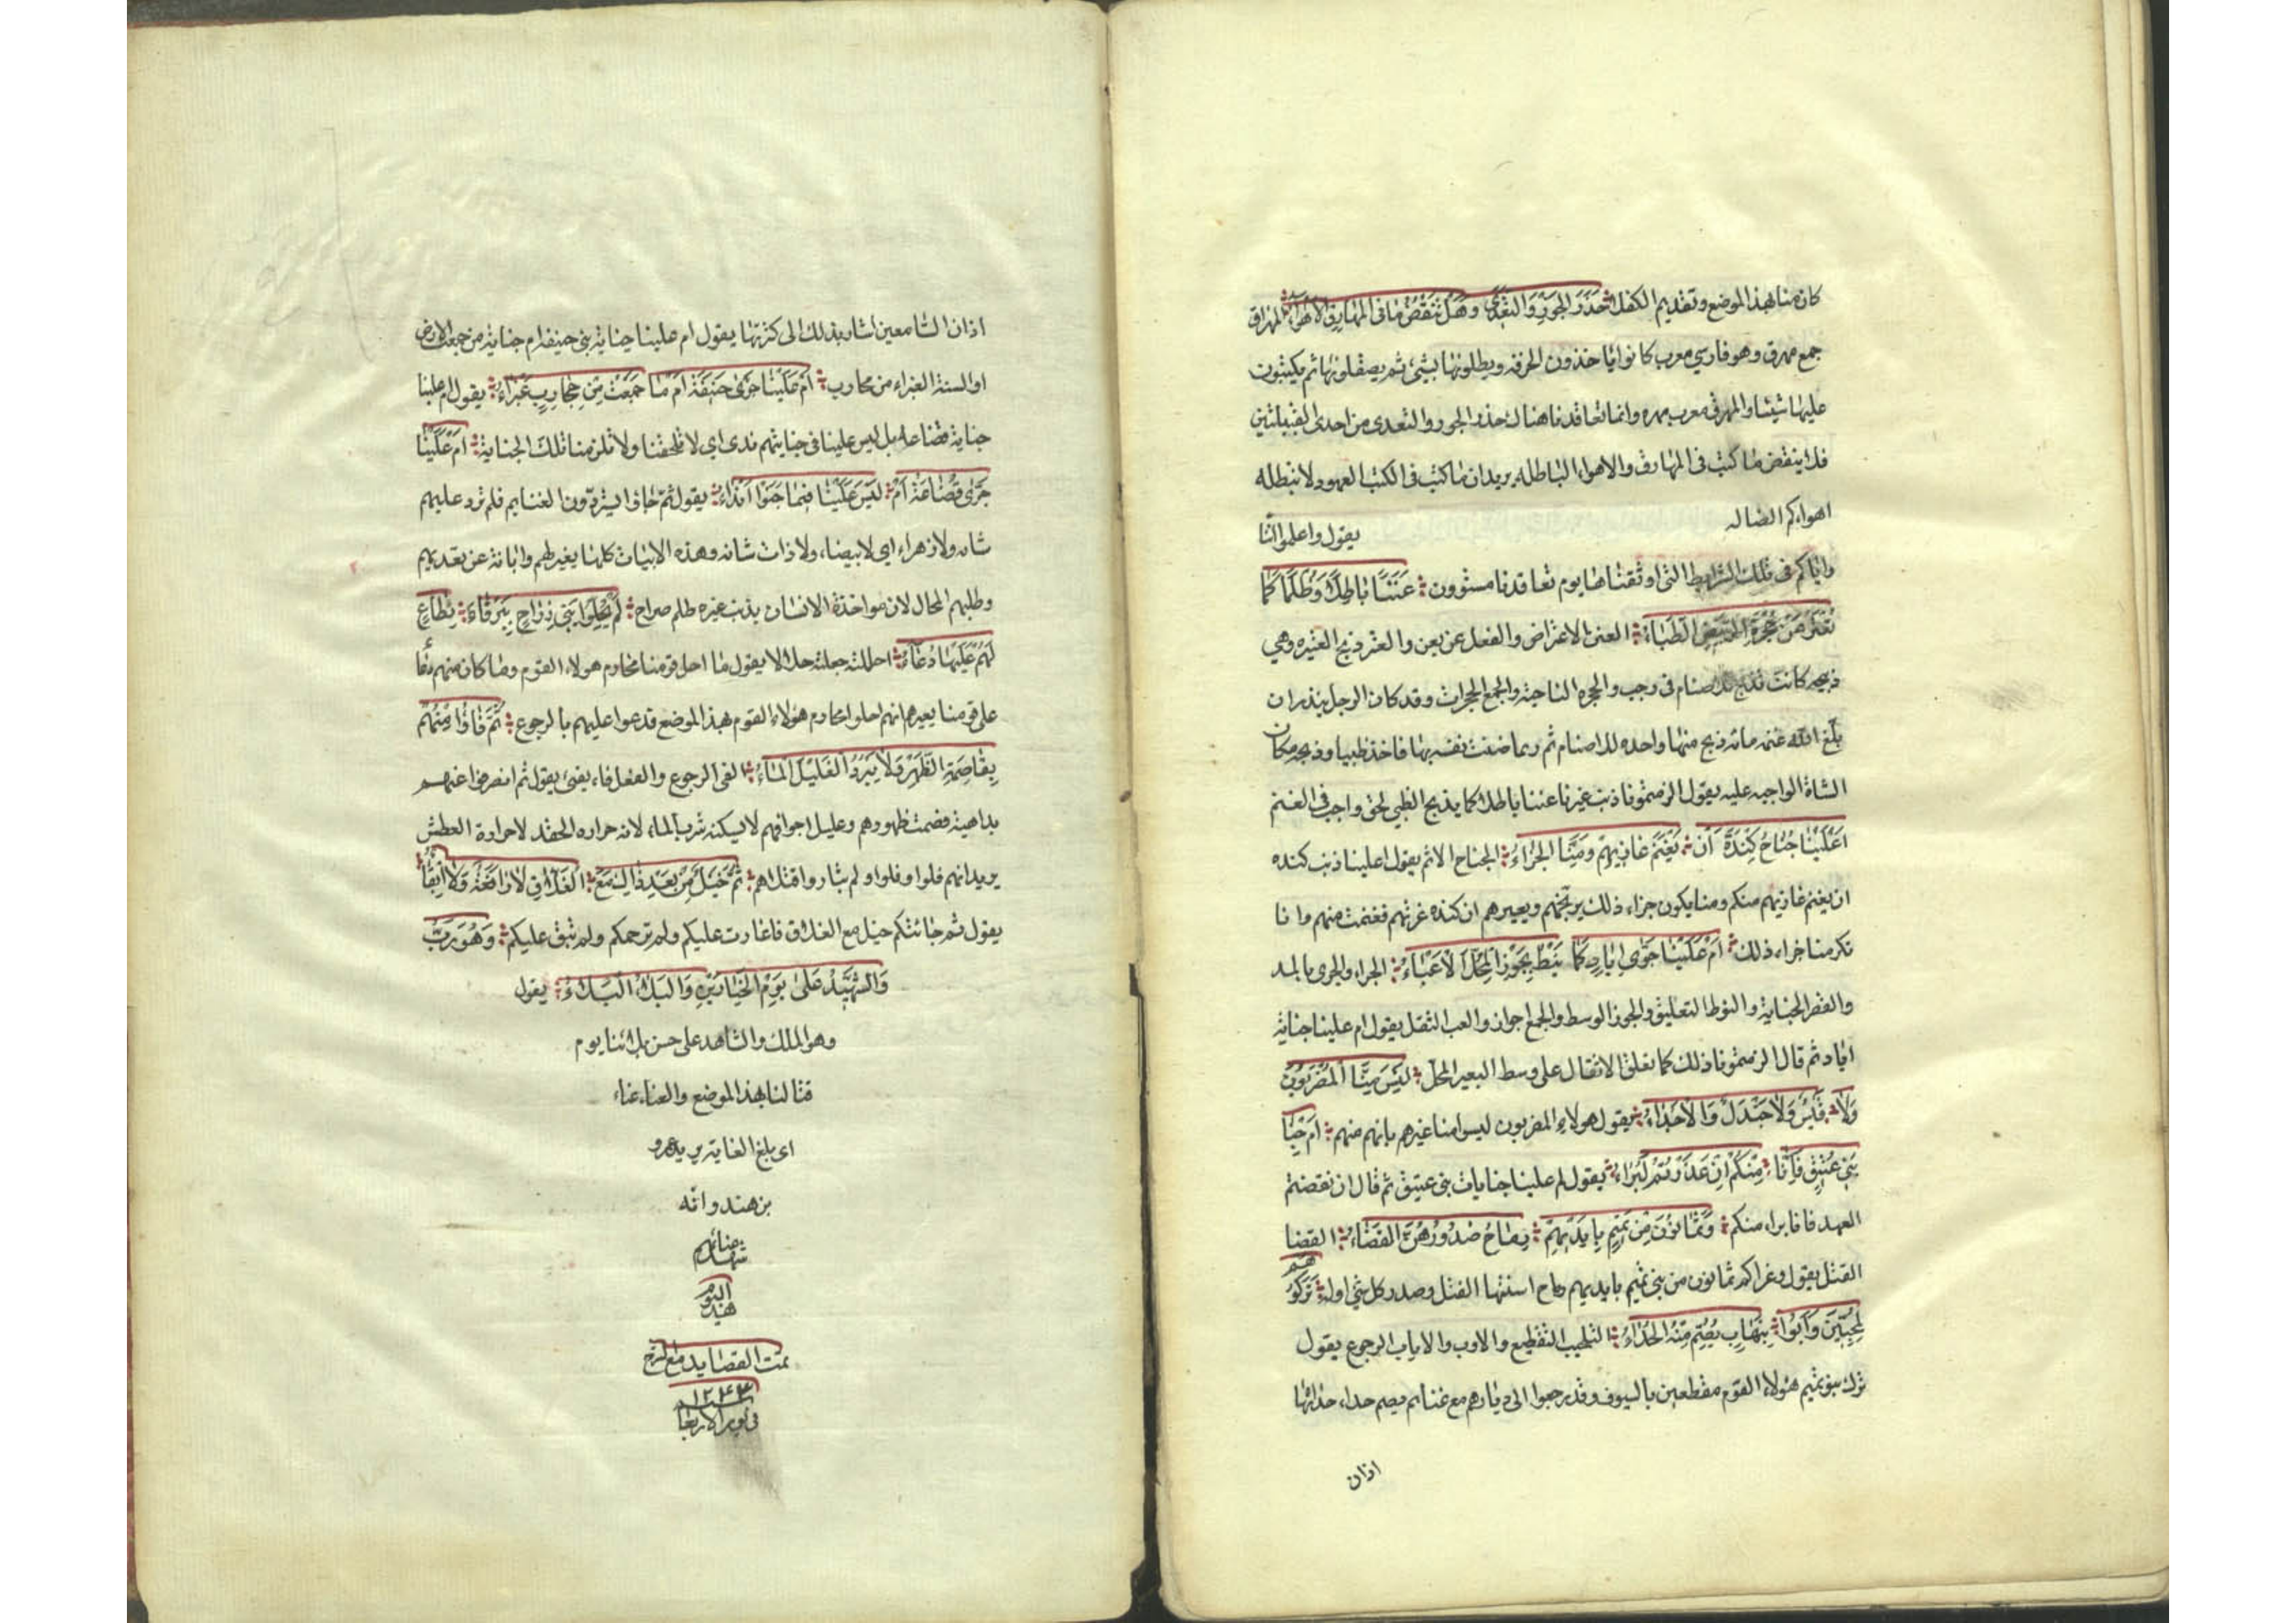 كان منا بهذا الموضع وتقديم الكفلا حَذَرَ الجَوْرِ وَالتَّعَدِّي وَهَلْ يَنْقُضُ مَا فِي المَهَارِقِ الأَهْوَاءُ المهراق
جمع مهرق وهو فارسي معرب كانوا ياخذون الخرقه ويطلونها بشيئ ثم يصقلونها ثم يكتبون
عليها شيئا والمهرق معرب مهره وانما تعاقدنا هناك حذر الجور والتعدى من احدى القبيلتين
فلا ينقض ما كتب فى المهارق والاهواء الباطله يريد ان ما كتب فى الكتب العهود لا تبطله
اهواءكم الضاله يقول واعلموا اننا
واياكم فى تلك الشرايط التى اوثقناها يوم تعاقدنا مستوون عَنَنًا بَاطِلًا وَظُلْمًا كَمَا
تُعْتَرُ عَنْ حُجْرَةِ الرَّبِيضِ الظِّبَاءُ العنن الاعتراض والفعل عن يعن والعتر ذبح العتيره وهي
ذبيحه كانت تذبح للاصنام فى رجب والحجره الناحية والجمع الحجرات وقد كان الرجل ينذر ان
بلغ الله غنمه مائه ذبح منها واحده للاصنام ثم ربما ضنت نفسه بها فاخذ ظبيا وذبحه مكان
الشاة الواجبه عليه يقول الزمتمونا ذنب غيرنا عننا باطلا كما يذبح الظبي لحق واجب فى الغنم
اَعَلَيْنَا جُنَاحُ كِنْدَةَ اَنْ يَغْنَمَ غَازِيهِمُ وَمِنَّا الجَزَاءُ الجناح الاثم يقول اعلينا ذنب كنده
ان يغنم غازيهم منكم ومنا يكون جزاء ذلك يوبخهم ويعيرهم ان كنده غزتهم فغنمت منهم وانا
نكر منا جزاء ذلك اَمْ عَلَيْنَا جَرَّى اِيَادٍ كَمَا نِيْطَ بِجَوْزِ المُحَمَّلِ الاَعْبَاءُ الجراء والجرى بالمد
والقصر الجناية والنوط التعليق والجوز الوسط والجمع اجواز والعبء الثقل يقول ام علينا جناية
اياد ثم قال الزمتمونا ذلك كما تعلق الاثقال على وسط البعير المحمل لَيْسَ مِنَّا المُضَرَّبُونَ
وَلَا قَيْسٌ وَلَا جَنْدَلٌ وَالاَحَذَّاءُ يقول هولاء المضربون ليسوا منا غيرهم بانهم منهم اَمْ جَنَايَا
بَنِي عَتِيْقٍ فَاِنَّا مِنْكُمُ اِنْ غَدَرْتُمُ لَبُرَاءُ يقول ام علينا جنايات بنى عتيق ثم قال ان نقضتم
العهد فانا براء منكم وَثَمَانُوْنَ مِنْ تَمِيْمٍ بِاَيْدِيْهِمْ رِمَاحٌ صُدُوْرُهُنَّ القَضَاءُ القضا
القتل يقول وغزاكم ثمانون من بنى تميم بايديهم رماح اسنتها القتل وصدر كل شي اوله تَرَكُوهُمْ
مُلَحَّبِيْنَ وَآبُوا بِنِهَابٍ يُصِمُّ مِنْهُ الحُدَاءُ التلحيب التقطيع والاوب والاياب الرجوع يقول
ترك بنو تميم هولاء القوم مقطعين بالسيوف وقد رجعوا الى ديارهم مع غنائم يصم حداء حداتها
اذان
اذان السامعين اشار بذلك الى كثرتها يقول ام علينا جناية بنى حنيفه ام جناية من جمعت الارض
او السنة الغبراء من محارب اَمْ عَلَيْنَا جَرَّى حَنِيْفَةَ اَمْ مَا جَمَعَتْ مِنْ مُحَارِبٍ غَبْرَاءُ يقول ام علينا
جناية قضاعه بل ليس علينا فى جنايتهم ندى اي لا تلحقنا ولا تلزمنا تلك الجناية اَمْ عَلَيْنَا
جَرَّى قُضَاعَةَ اَمْ لَيْسَ عَلَيْنَا فِيْمَا جَنَوْا اَنْدَاءُ يقول ثم جاؤا يستردون الغنايم فلم ترد عليهم
شاه ولا زهراء اي لا بيضاء ولا ذات شامه وهذه الابيات كلها يغير لهم وابانة عن تعديهم
وطلبهم المحال لان مواخذة الانسان بذنب غيره ظلم صراح لَمْ يُحِلُّوا بَنِي رِزَاحٍ بِبَرْقَاءِ نِطَاعٍ
لَهُمْ عَلَيْهَا دُعَاءُ احللت جعلته حلالا يقول ما احل قومنا محارم هولاء القوم وما كان منهم دعا
على قومنا يعيرهم انهم احلوا محارم هولاء القوم بهذا الموضع فدعوا عليهم بالرجوع ثُمَّ فَاؤُا مِنْهُمْ
بِقَاصِمَةِ الظَّهْرِ وَلَا يَبْرُدُ الغَلِيْلَ المَاءُ الفى الرجوع والفعل فاء يفيئ يقول ثم انصرفوا عنهم
بداهية قصمت ظهورهم وغليل اجوافهم لا يسكنه شرب الماء لانه حراره الحقد لا حرارة العطش
يريد انهم فلوا وقلوا ولم يثاروا قتلاهم ثُمَّ خَيْلٌ مِنْ بَعْدِ ذَاكَ مَعَ الغَلَّاقِ لَا رَافَةٌ وَلَا اِبْقَاءُ
يقول ثم جائتكم خيل مع الغلاق فاغارت عليكم ولم ترحمكم ولم تبق عليكم وَهُوَ الرَّبُّ
وَالشَّهِيْدُ عَلَى يَوْمِ الحِيَارَيْنِ وَالبَلَاءُ البَلَاءُ يقول
وهو الملك والشاهد على حسن بلائنا يوم
قتالنا بهذا الموضع والعناء عناء
اى بلغ الغاية يريد عمرو
بن هند وانه
تمت القصايد مع الشرح
سنه ١٢٤٣
فى يوم الاربعا